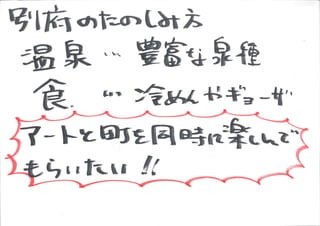 別府のたのしみ方
温泉 … 豊富な泉種
食 … 冷めんやギョーザ
アートと町を同時に楽しんで
もらいたい!!